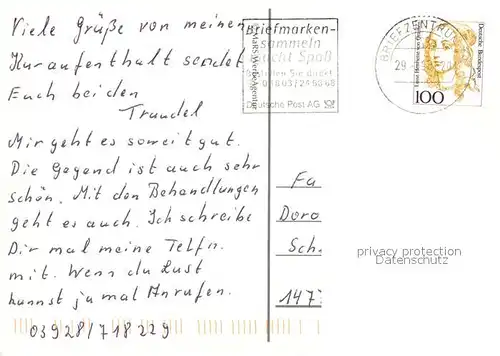 Viele Grüße von meinen
Kuraufenthalt sendet
Euch beiden
Traudel
Mir geht es soweit gut.
Die Gegend ist auch sehr
schön. Mit den Behandlungen
geht es auch. Ich schreibe
Dir mal meine Telfn.
mit. Wenn du Lust
kannst ja mal Anrufen.
03928/718229
Briefmarken-
sammeln
macht Spaß
Bestellen Sie direkt
Deutsche Post AG
BRIEFZENTRUM
Deutsche Bundespost
100
Fa
Doro
Sch.
147
privacy protection
Datenschutz